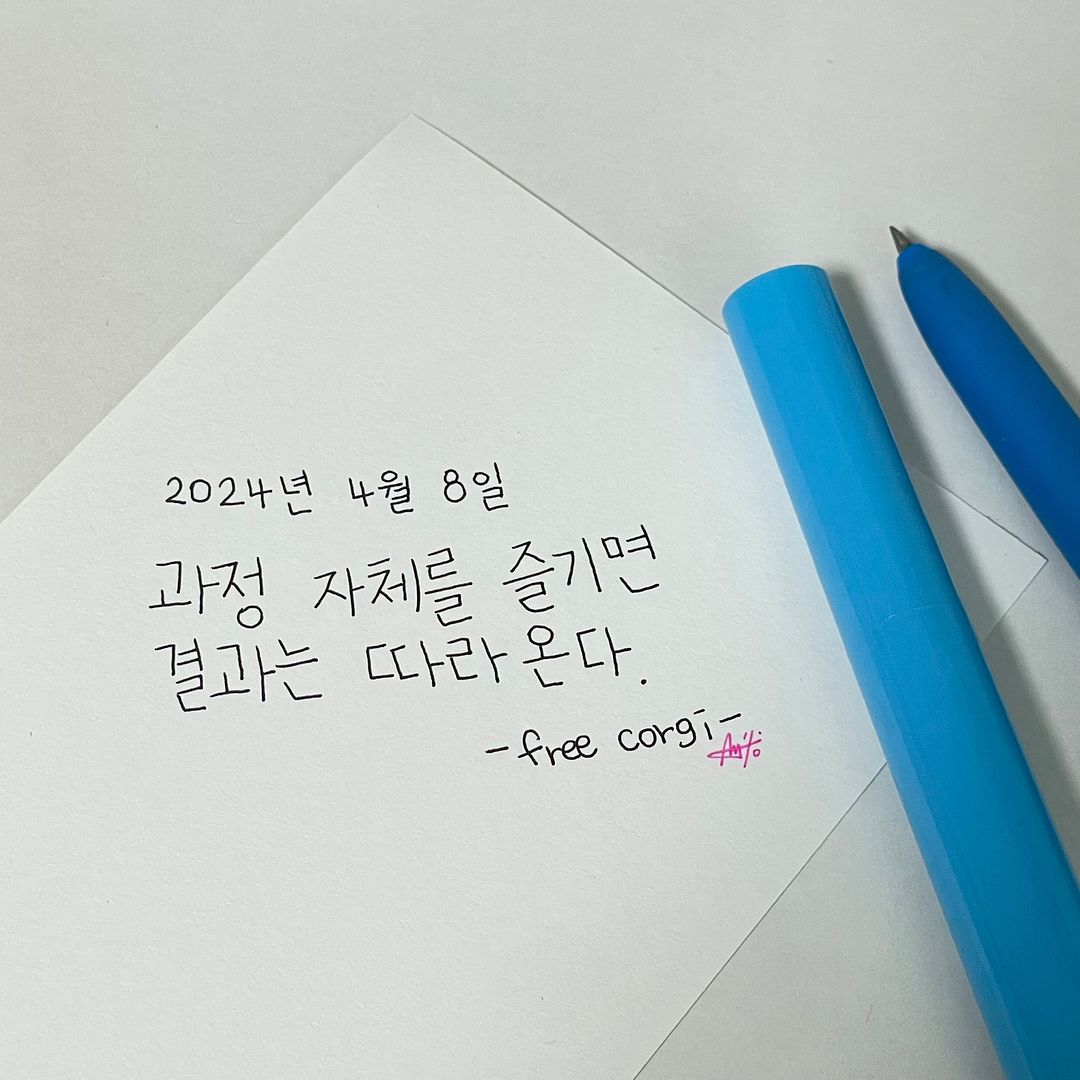 2024년 4월 8일
과정 자체를 즐기면
결과는 따라온다.
-free corgi-